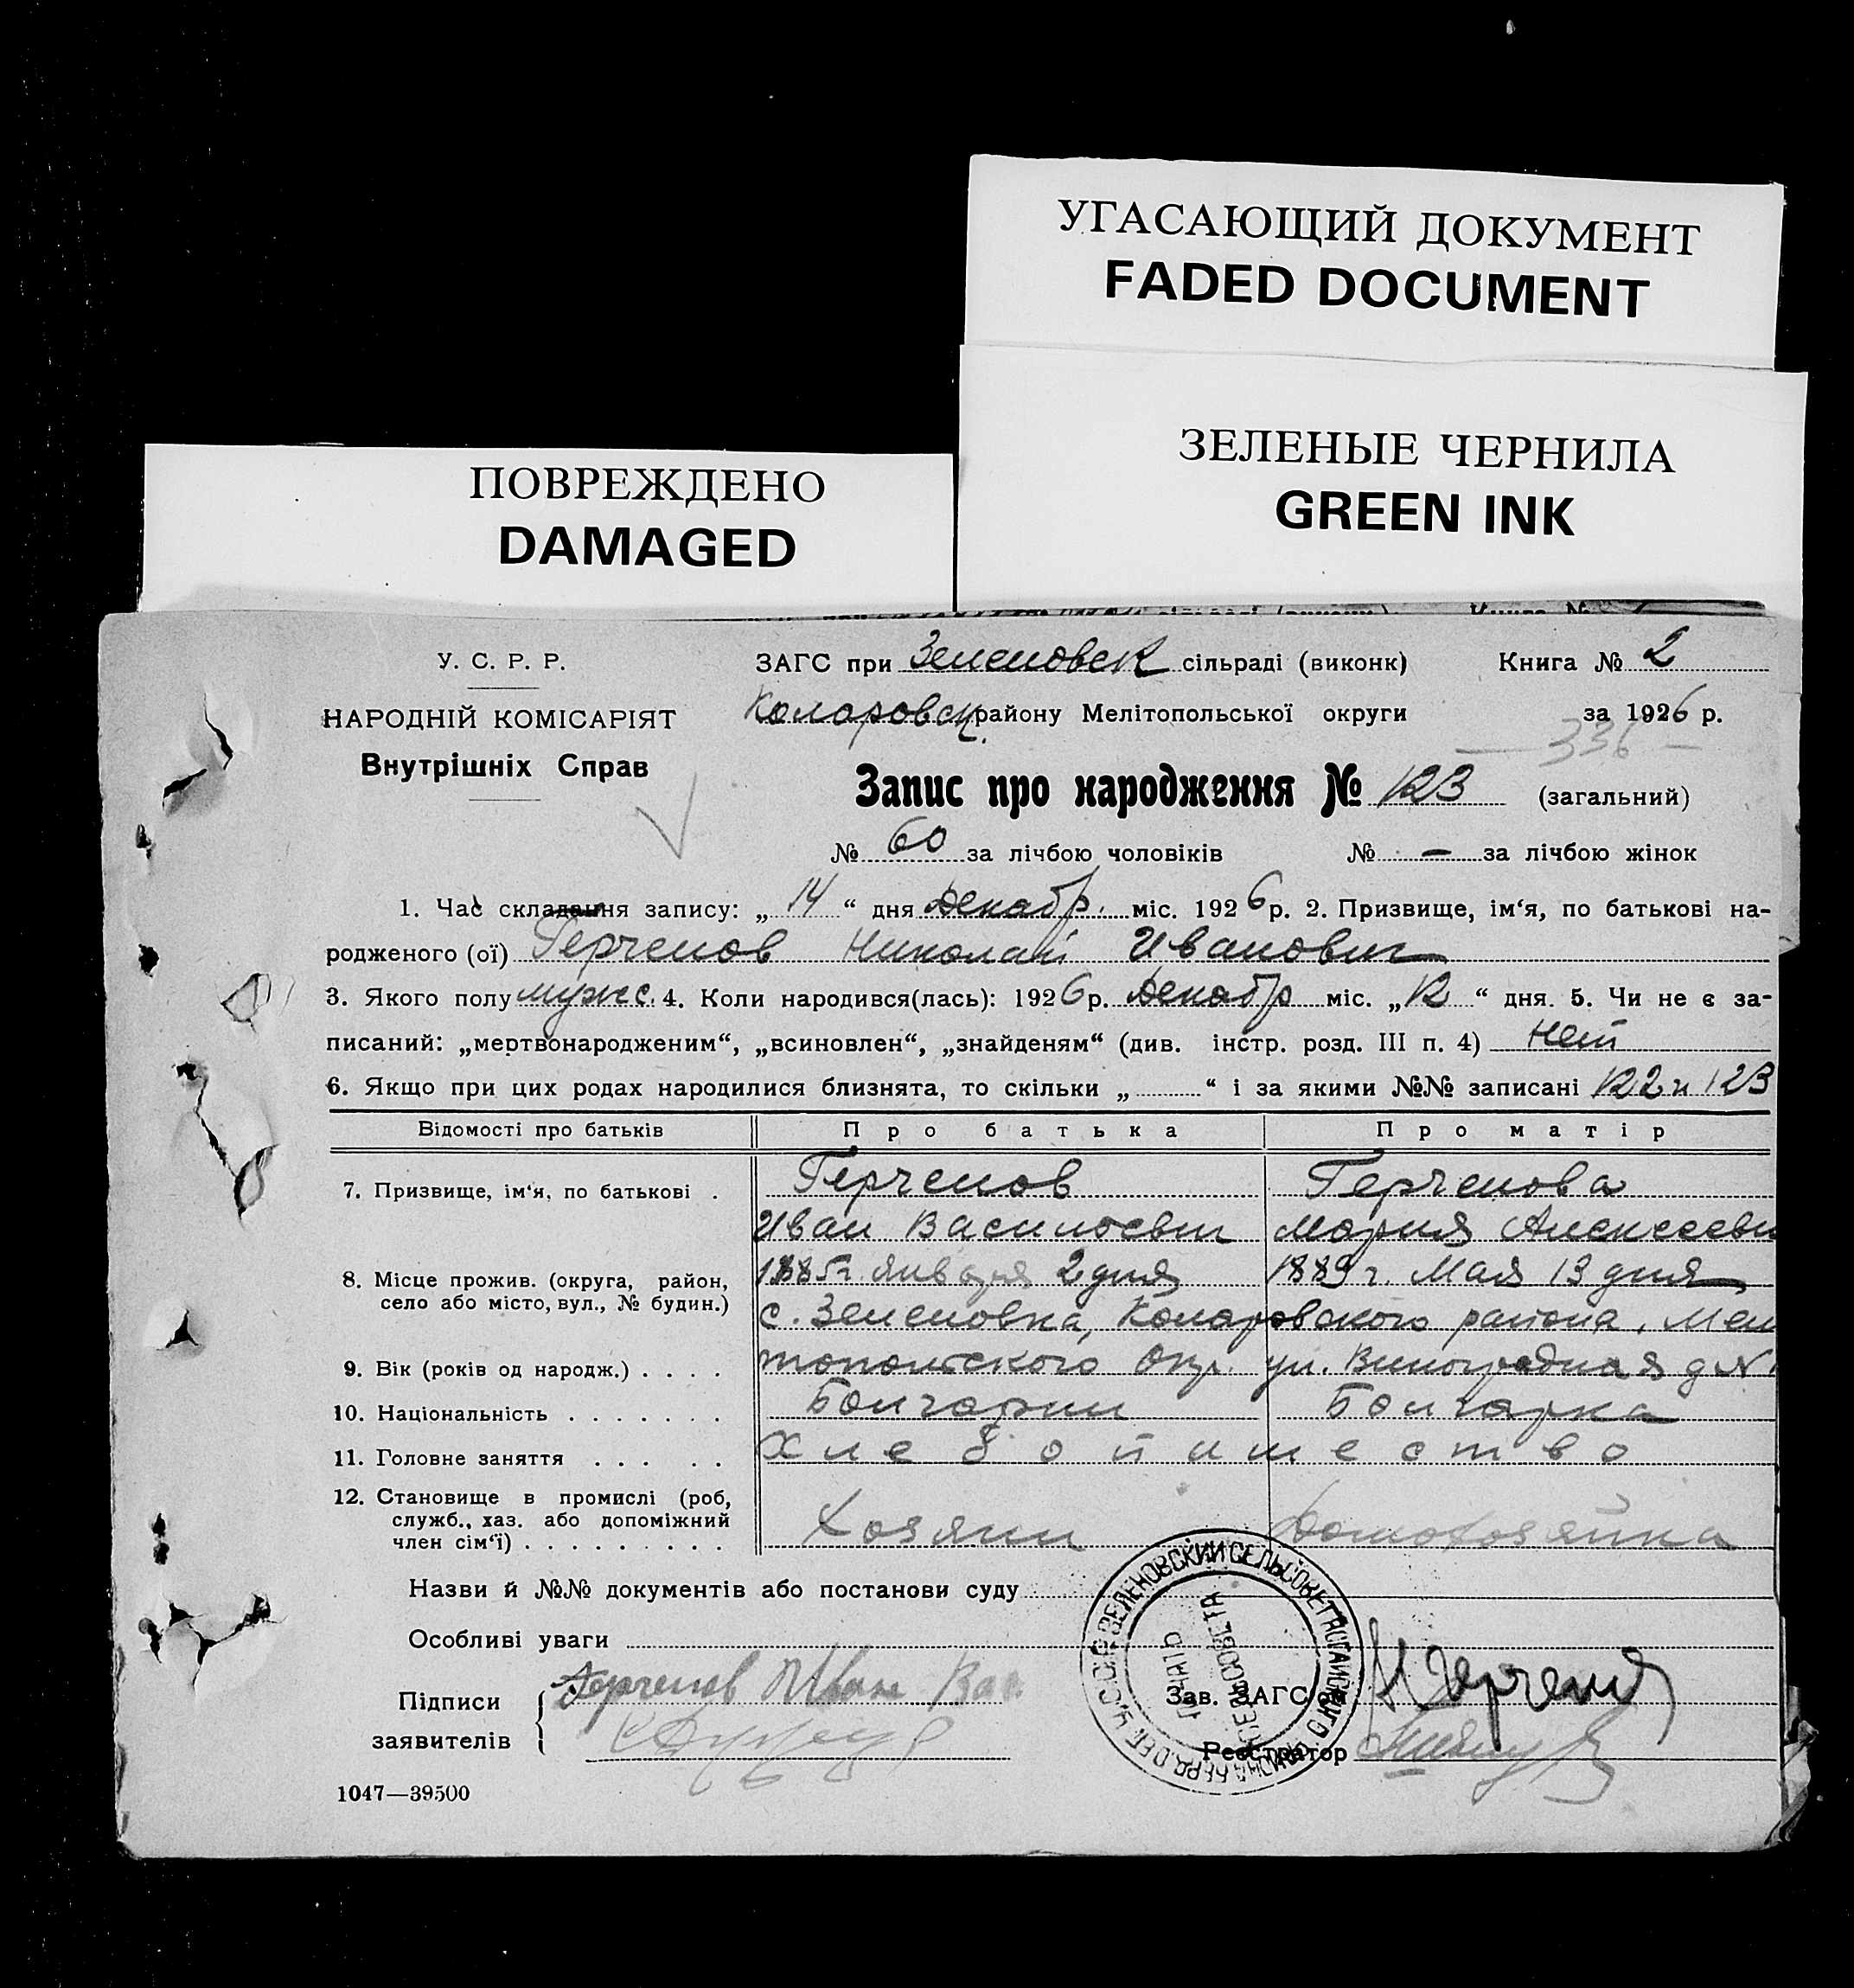 УГАСАЮЩИЙ ДОКУМЕНТ
FADED DOCUMENT
ЗЕЛЕНЫЕ ЧЕРНИЛА
GREEN INK
ПОВРЕЖДЕНО
DAMAGED
У. С. Р. Р.
НАРОДНІЙ КОМІСАРІЯТ
Внутрішніх Справ
ЗАГС при Зеленовск сільраді (виконк) Книга № 2
Коларовск. району Мелітопольської округи за 1926 р.
— 336 —
Запис про народження № 123 (загальний)
№ 60 за лічбою чоловіків № — за лічбою жінок
1. Час складання запису: „ 14 “ дня Декабр. міс. 1926 р. 2. Призвище, ім‘я, по батькові на-
родженого (ої) Герченов Николай Иванович
3. Якого полу мужс. 4. Коли народився(лась): 1926 р. Декабр міс. „ 12 “ дня. 5. Чи не є за-
писаний: „мертвонародженим“, „всиновлен“, „знайденям“ (див. інстр. розд. III п. 4) Нет
6. Якщо при цих родах народилися близнята, то скільки „ “ і за якими №№ записані 122 и 123
Відомості про батьків Про батька Про матір
7. Призвище, ім‘я, по батькові . Герченов Герченова
Иван Василоевич Мария Алексеевн
8. Місце прожив. (округа, район, село або місто, вул., № будин.) 1885 г. января 2 дня 1889 г. Мая 13 дня
с. Зеленовка, Коларовского района, Мели
9. Вік (років од народж.) . . . . топольского Окр. ул. Виноградная д №
10. Національність . . . . . . . Болгарин Болгарка
11. Головне заняття . . . . . Хлебопашество
12. Становище в промислі (роб, служб., хаз. або допоміжний член сім‘ї) . . . . . . . . . Хозяин Домохозяйка
Назви й №№ документів або постанови суду
Особливі уваги
ЗЕЛЕНОВСКИЙ СЕЛЬСОВЕТ
ПЕЧАТЬ
СЕЛЬСОВЕТА
Підписи
заявителів
Герченов Иван Вас
Зав. ЗАГС‘ом
Реєстратор
1047—39500